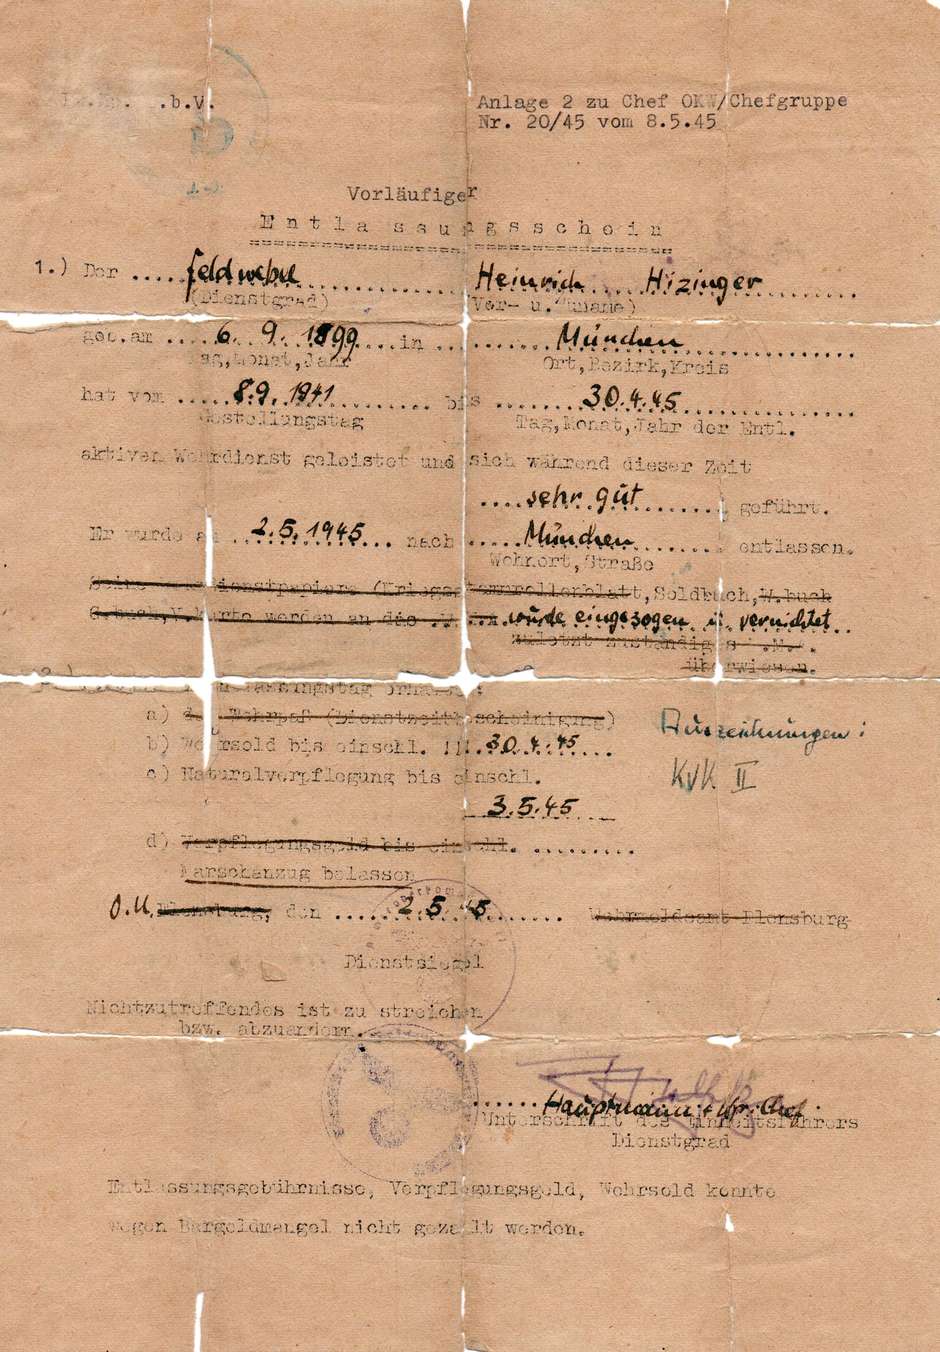 .b.V.
Anlage 2 zu Chef OKW/Chefgruppe
Nr. 20/45 vom 8.5.45
Vorläufiger
Entlassungsschein
1.) Der ..... Feldwebel ..... Heinrich Hizinger
(Dienstgrad) (Vor- u. Zuname)
geb.am ..... 6. 9. 1899 ..... in ..... München
Tag,Monat,Jahr Ort,Bezirk,Kreis
hat vom ..... 8.9.1941 ..... bis ..... 30.4.45
Gestellungstag Tag,Monat,Jahr der Entl.
aktiven Wehrdienst geleistet und sich während dieser Zeit
.... sehr gut ..... geführt.
Er wurde am ..... 2.5.1945 ..... nach ..... München ..... entlassen.
Wohnort,Straße
Dienstpapiere (Kriegsstammrollenblatt, Soldbuch, W.buch
G.buch,V.karte werden an das wurde eingezogen u. vernichtet
zuletzt zuständige
überwiesen.
2.) Entlassungstag erhalten:
a) den Wehrpaß (Dienstzeitbescheinigung)
Auszeichnungen:
b) Wehrsold bis einschl. ... 30.4.45
c) Naturalverpflegung bis einschl.
KVK II
3.5.45
d) Verpflegungsgeld bis einschl. .........
Marschanzug belassen
O.U. Flensburg, den ..... 2.5.45 ..... Wehrmeldeamt Flensburg
Dienstsiegel
Nichtzutreffendes ist zu streichen
bzw. abzuändern.
Hauptmann +
Unterschrift des Einheitsführers
Dienstgrad
Entlassungsgebührnisse, Verpflegungsgeld, Wehrsold konnte
wegen Bargeldmangel nicht gezahlt werden.